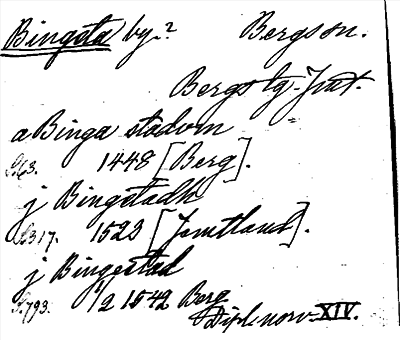 Bingsta by? Bergs sn.
Bergs tg. Jmt.
a Binga stadom
S. 63. 1448 [Berg].
j Bingstadh
S. 317. 1523 [Jemtland].
j Bingestad
S. 793. 1/2 1542 Berg
Dipl. norv. XIV.